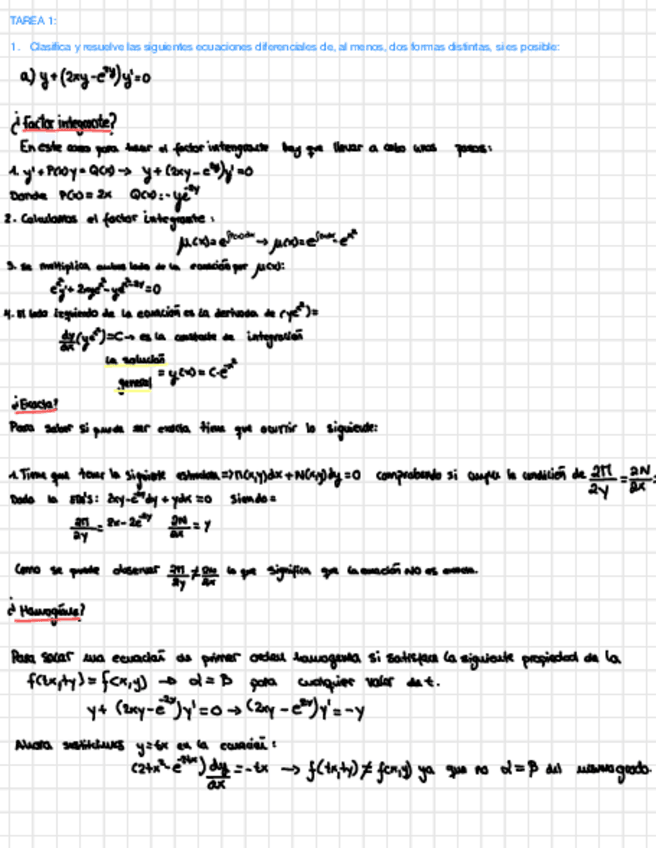 TAREA 1:
1. Clasifica y resuelve las siguientes ecuaciones diferenciales de, al menos, dos formas distintas, si es posible:
a) y+(2xy-e^-2y)y'=0
¿Factor integrante?
En este caso para hacer el factor intengrante hay que llevar a cabo unos pasos:
1. y'+P(x)y=Q(x)→ y+(2xy-e^-2y)y'=0
Donde P(x)=2x Q(x)=-ye^-2y
2. Calculamos el factor integrante:
μ(x)=e^∫P(x)dx → μ(x)=e^∫2xdx=e^x²
3. Se multiplica ambos lado de la ecuación por μ(x):
4. El lado izquierdo de la ecuación es la derivada de (ye^x²)=
dy/dx(ye^x²)=C→ es la constante de integración
La solución
general = y(x)=C·e^-x²
¿Exacta?
Para saber si puede ser exacta tiene que ocurrir lo siguiente:
1. Tiene que tener la siguiente estructura=>M(x,y)dx+N(x,y)dy=0 comprobando si cumple la condición de ∂M/∂y=∂N/∂x=
Dada la 2xy-e^-2y dy+ydx=0 Siendo=
∂M/∂y=2x-2e^-2y ∂N/∂x=y
Como se puede observar ∂M/∂y≠∂N/∂x lo que significa que la ecuación NO es exacta.
¿Homogénea?
Para sacar una ecuación de primer orden homogenea si satisface la siguiente propiedad de la
f(tx,ty)=f(x,y) → α=β para cualquier valor de t.
y+(2xy-e^-2y)y'=0→(2xy-e^-2y)y'=-y
Ahora sustituimos y=tx en la ecuación:
(2tx²-e^-2tx)dy/dx=-tx → f(tx,ty)≠f(x,y) ya que no α=β del mismo grado.